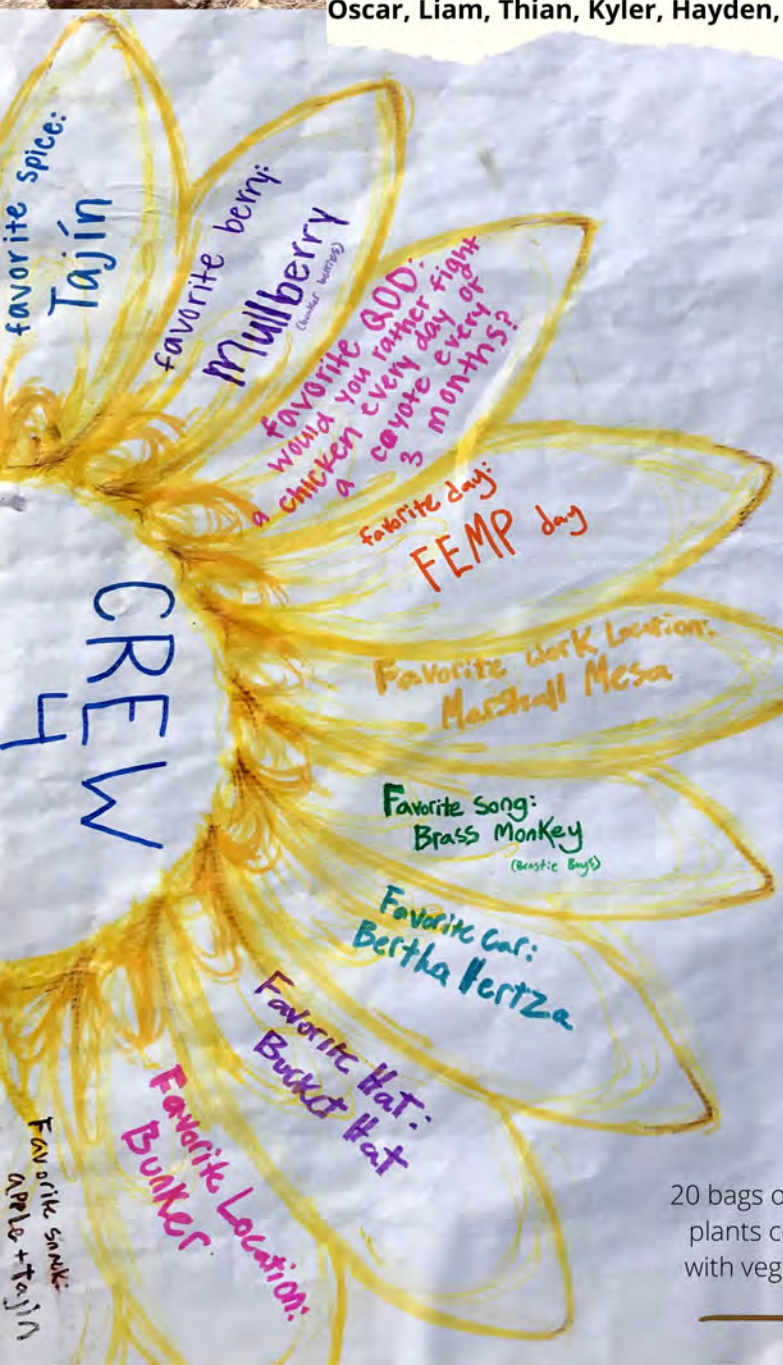 Oscar, Liam, Thian, Kyler, Hayden,
favorite spice:
Tajín
favorite berry:
Mullberry
(bunker berries)
favorite QOD:
would you rather fight
a chicken every day or
a coyote every
3 months?
favorite day:
FEMP day
Favorite work Location:
Marshall Mesa
CREW
4
Favorite Song:
Brass Monkey
(Beastie Boys)
Favorite Car:
Bertha Vertza
Favorite Hat:
Bucket Hat
Favorite Location:
Bunker
Favorite snack:
apple + Tajín
20 bags o
plants c
with veg